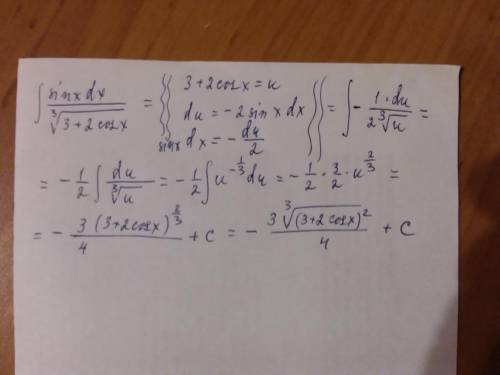 ∫ sinx dx / ∛(3+2cosx) = { 3+2cosx = u; du = -2 sinx dx; sinx dx = -du/2 } = ∫ - 1·du / 2∛u =
= -1/2 ∫ du/∛u = -1/2 ∫ u^(-1/3) du = -1/2 · 3/2 · u^(2/3) =
= - 3(3+2cosx)^(2/3) / 4 + c = - 3∛(3+2cosx)² / 4 + C